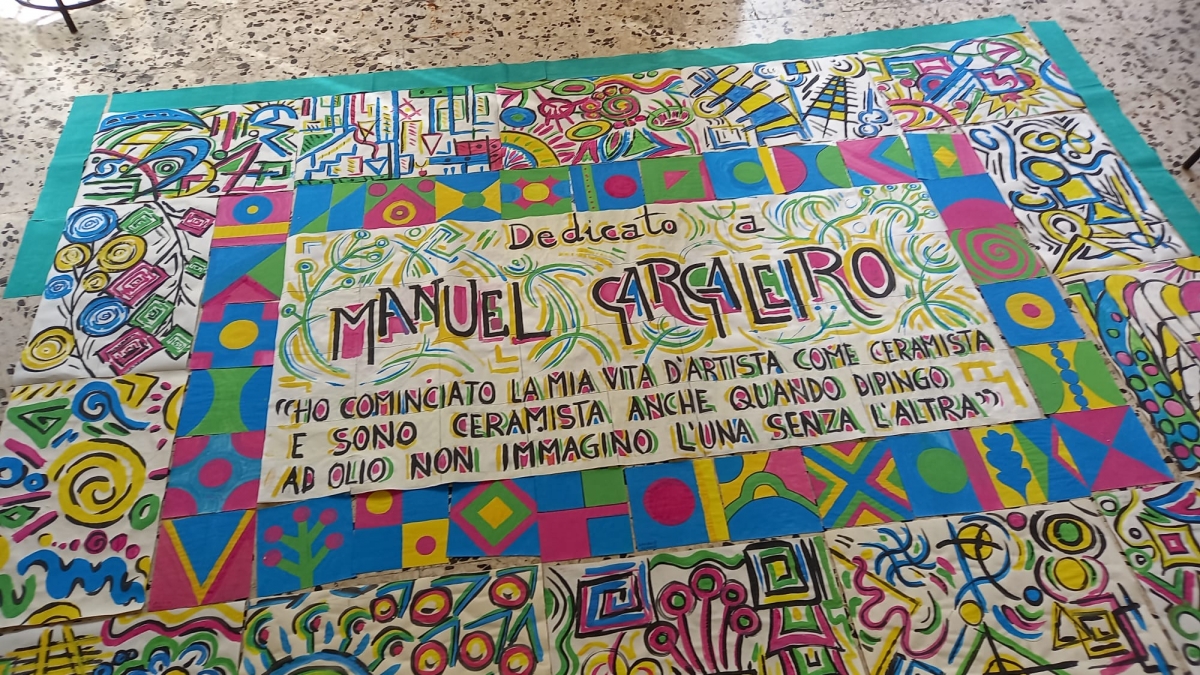 Dedicato a
MANUEL CARGALEIRO
"HO COMINCIATO LA MIA VITA D'ARTISTA COME CERAMISTA
E SONO CERAMISTA ANCHE QUANDO DIPINGO
AD OLIO NON IMMAGINO L'UNA SENZA L'ALTRA"